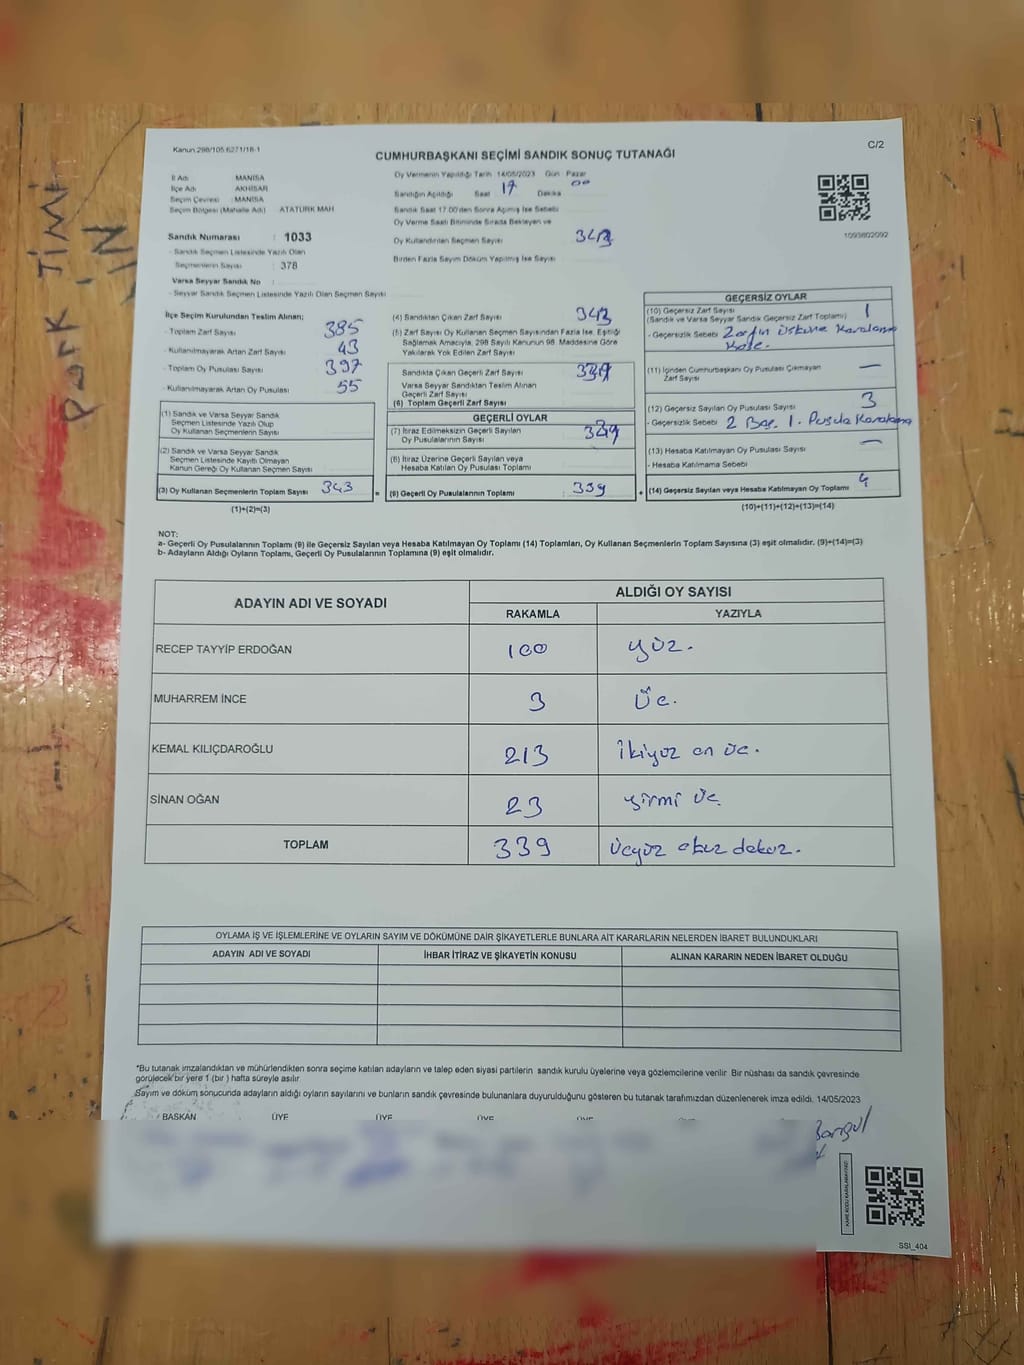 Kanun 298/105 6271/18-1
CUMHURBAŞKANI SEÇİMİ SANDIK SONUÇ TUTANAĞI
C/2
İl Adı : MANİSA
İlçe Adı : AKHİSAR
Seçim Çevresi : MANİSA
Seçim Bölgesi (Mahalle Adı) : ATATÜRK MAH
Sandık Numarası : 1033
- Sandık Seçmen Listesinde Yazılı Olan
Seçmenlerin Sayısı : 378
Varsa Seyyar Sandık No :
- Seyyar Sandık Seçmen Listesinde Yazılı Olan Seçmen Sayısı
Oy Vermenin Yapıldığı Tarih 14/05/2023 Gün Pazar
Sandığın Açıldığı Saat 17 Dakika 00
Sandık Saat 17.00'den Sonra Açılmış İse Sebebi
Oy Verme Saati Bitiminde Sırada Bekleyen ve
Oy Kullandırılan Seçmen Sayısı 343
Birden Fazla Sayım Döküm Yapılmış İse Sayısı
1093802092
İlçe Seçim Kurulundan Teslim Alınan;
- Toplam Zarf Sayısı 385
- Kullanılmayarak Artan Zarf Sayısı 43
- Toplam Oy Pusulası Sayısı 397
- Kullanılmayarak Artan Oy Pusulası 55
(1) Sandık ve Varsa Seyyar Sandık
Seçmen Listesinde Yazılı Olup
Oy Kullanan Seçmenlerin Sayısı
(2) Sandık ve Varsa Seyyar Sandık
Seçmen Listesinde Kayıtlı Olmayan
Kanun Gereği Oy Kullanan Seçmen Sayısı
(3) Oy Kullanan Seçmenlerin Toplam Sayısı 343 =
(1)+(2)=(3)
(4) Sandıktan Çıkan Zarf Sayısı 343
(5) Zarf Sayısı Oy Kullanan Seçmen Sayısından Fazla İse, Eşitliği
Sağlamak Amacıyla, 298 Sayılı Kanunun 98. Maddesine Göre
Yakılarak Yok Edilen Zarf Sayısı
Sandıkta Çıkan Geçerli Zarf Sayısı 339
Varsa Seyyar Sandıktan Teslim Alınan
Geçerli Zarf Sayısı
(6) Toplam Geçerli Zarf Sayısı
GEÇERLİ OYLAR
(7) İtiraz Edilmeksizin Geçerli Sayılan
Oy Pusulalarının Sayısı 339
(8) İtiraz Üzerine Geçerli Sayılan veya
Hesaba Katılan Oy Pusulası Toplamı
(9) Geçerli Oy Pusulalarının Toplamı 339 +
GEÇERSİZ OYLAR
(10) Geçersiz Zarf Sayısı 1
(Sandık ve Varsa Seyyar Sandık Geçersiz Zarf Toplamı)
- Geçersizlik Sebebi Zarfın üstüne Karalama
(11) İçinden Cumhurbaşkanı Oy Pusulası Çıkmayan —
Zarf Sayısı
(12) Geçersiz Sayılan Oy Pusulası Sayısı 3
- Geçersizlik Sebebi 2 Boş 1. Pusula Karalama
(13) Hesaba Katılmayan Oy Pusulası Sayısı —
- Hesaba Katılmama Sebebi
(14) Geçersiz Sayılan veya Hesaba Katılmayan Oy Toplamı 4
(10)+(11)+(12)+(13)=(14)
NOT:
a- Geçerli Oy Pusulalarının Toplamı (9) ile Geçersiz Sayılan veya Hesaba Katılmayan Oy Toplamı (14) Toplamları, Oy Kullanan Seçmenlerin Toplam Sayısına (3) eşit olmalıdır. (9)+(14)=(3)
b- Adayların Aldığı Oyların Toplamı, Geçerli Oy Pusulalarının Toplamına (9) eşit olmalıdır.
ADAYIN ADI VE SOYADI
ALDIĞI OY SAYISI
RAKAMLA YAZIYLA
RECEP TAYYİP ERDOĞAN 100 yüz.
MUHARREM İNCE 3 üç.
KEMAL KILIÇDAROĞLU 213 ikiyüz on üç.
SİNAN OĞAN 23 yirmi üç.
TOPLAM 339 üçyüz otuz dokuz.
OYLAMA İŞ VE İŞLEMLERİNE VE OYLARIN SAYIM VE DÖKÜMÜNE DAİR ŞİKAYETLERLE BUNLARA AİT KARARLARIN NELERDEN İBARET BULUNDUKLARI
ADAYIN ADI VE SOYADI İHBAR İTİRAZ VE ŞİKAYETİN KONUSU ALINAN KARARIN NEDEN İBARET OLDUĞU
*Bu tutanak imzalandıktan ve mühürlendikten sonra seçime katılan adayların ve talep eden siyasi partilerin sandık kurulu üyelerine veya gözlemcilerine verilir. Bir nüshası da sandık çevresinde
görülecek bir yere 1 (bir) hafta süreyle asılır.
Sayım ve döküm sonucunda adayların aldığı oyların sayılarını ve bunların sandık çevresinde bulunanlara duyurulduğunu gösteren bu tutanak tarafımızdan düzenlenerek imza edildi. 14/05/2023
BAŞKAN ÜYE ÜYE ÜYE ÜYE
SSİ_404
PARK TİMİ
IN